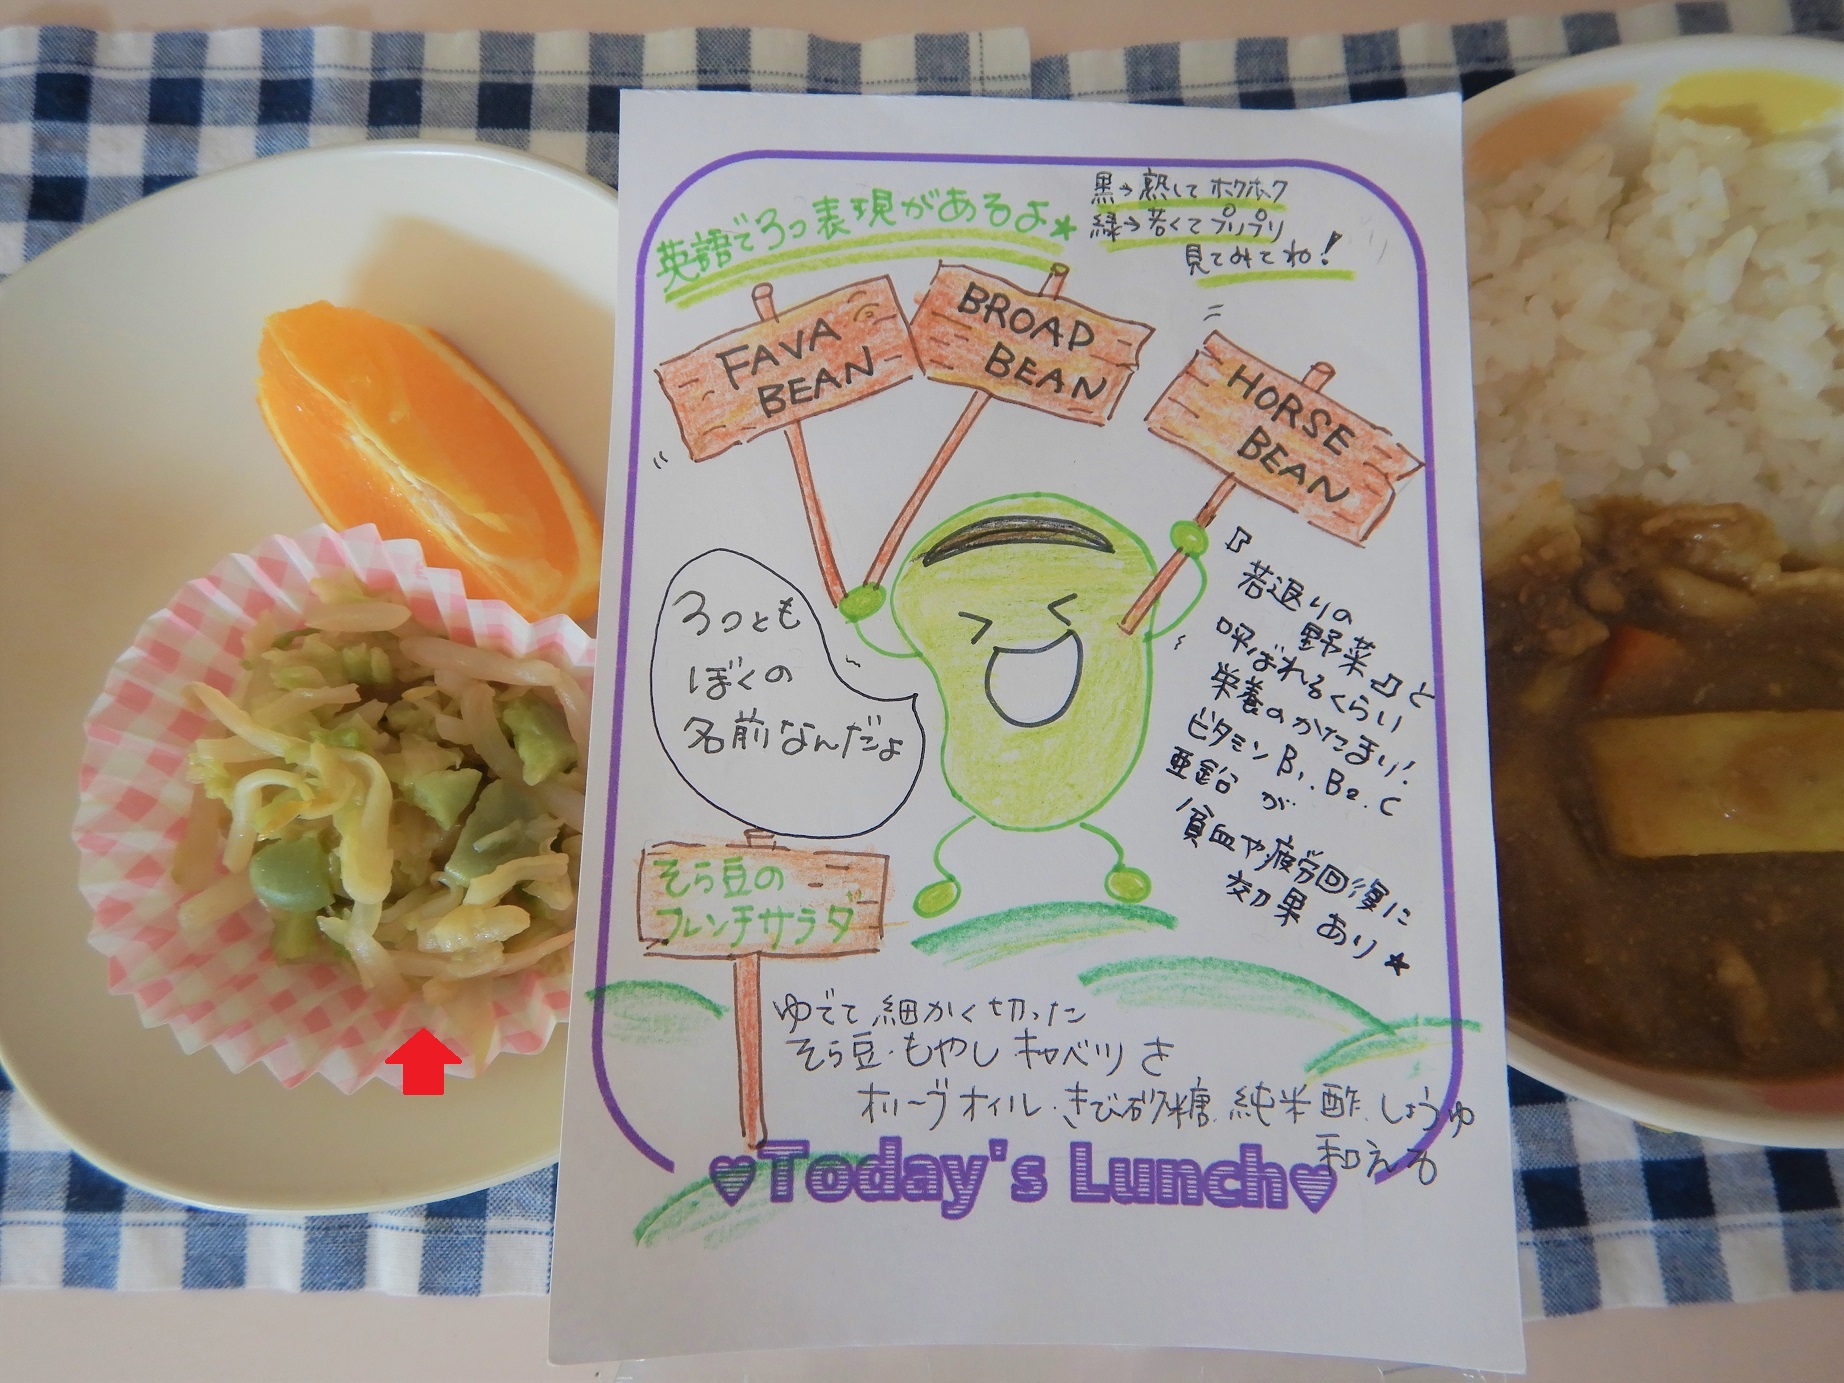 英語で3つ表現があるよ★
黒→熟してホクホク
緑→若くてプリプリ
見てみてね!
FAVA
BEAN
BROAD
BEAN
HORSE
BEAN
3つとも
ぼくの
名前なんだよ
『若返りの
野菜』と
呼ばれるくらい
栄養のかたまり!
ビタミンB1、B2、C
亜鉛が
貧血や疲労回復に
効果あり★
そら豆の
フレンチサラダ
ゆでて細かく切った
そら豆・もやしキャベツを
オリーブオイル・きび砂糖、純米酢、しょうゆ
和える
♥Today's Lunch♥